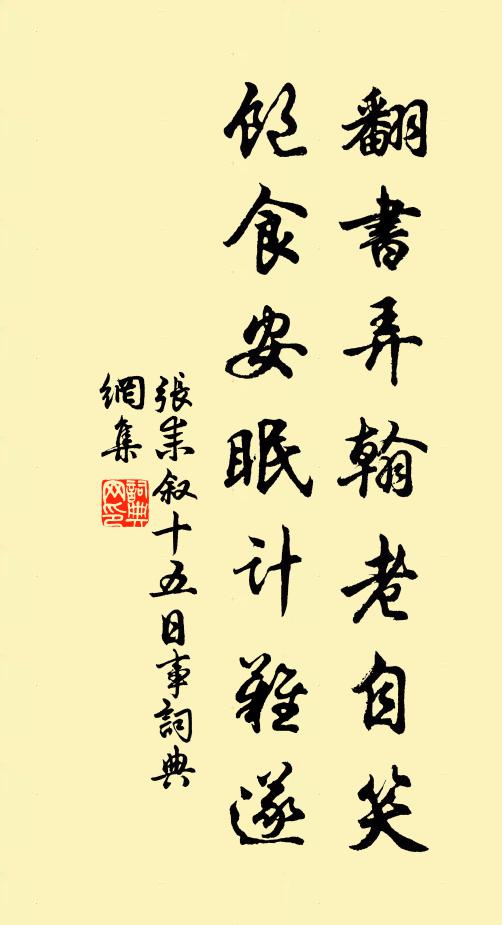 翻書弄翰老自笑
飽食安眠計難遂
張耒叙十五日事詞典
網集
詞典網印